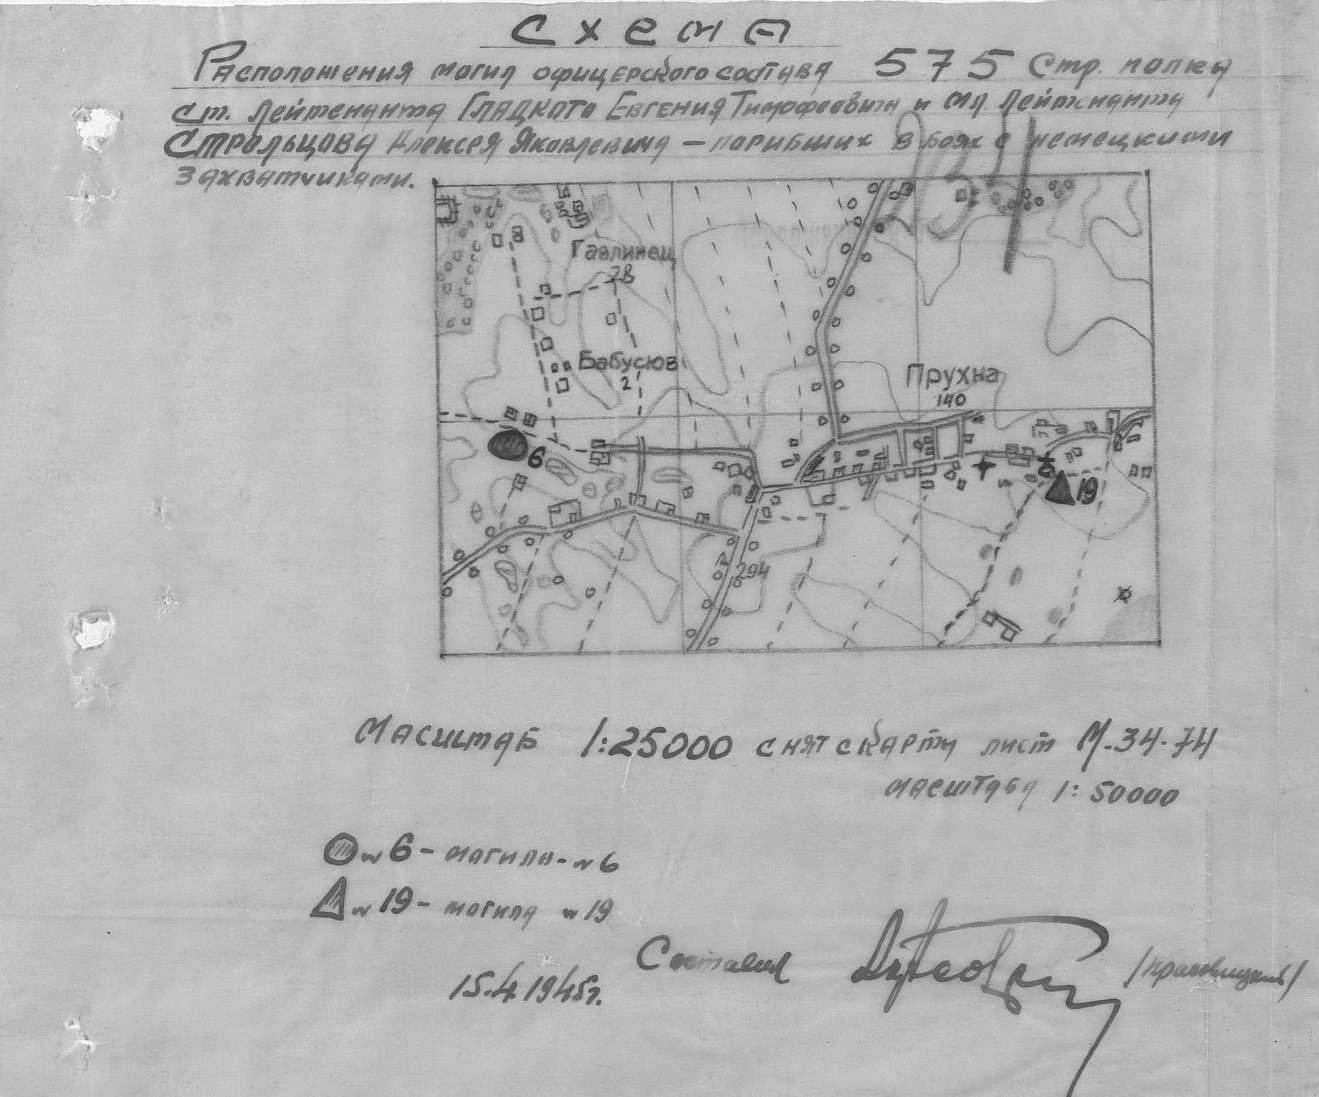 Схема
Расположения могил офицерского состава 575 стр. полка
ст. лейтенанта Гладкого Евгения Тимофеевича и мл. лейтенанта
Стрельцова Алексея Яковлевича — погибших в боях с немецкими
захватчиками.
Гавлинец
28
Бабусюв
2
Прухна
140
6
19
294
Масштаб 1:25000 снят с карты лист М.34-74
масштаба 1:50000
№ 6 - могила - № 6
№ 19 - могила № 19
Составил /Красовицкий/
15.4.1945г.